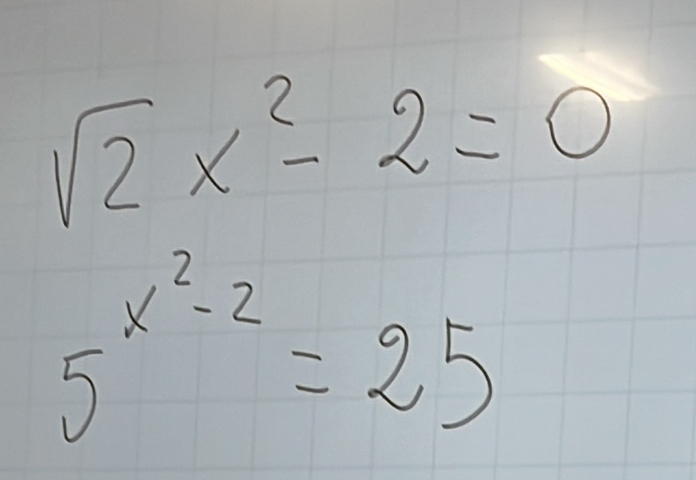 √2 x² - 2 = 0
5^(x² - 2) = 25